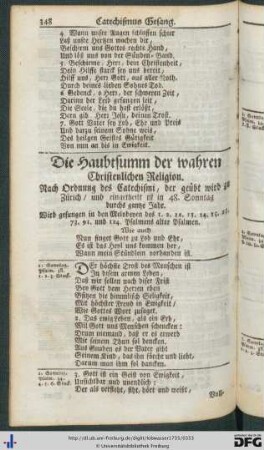 348 Catechismus Gesang.
4. Wann unsre Augen schlaffen schier
Laß unsre Hertzen wachen dir,
Beschirm uns Gottes rechte Hand,
Und löß uns von der Sünden-Band.
5. Beschirmer, Herr, dein Christenheit,
Dein Hülffe starck sey uns bereit,
Hilff uns, Herr Gott, aus aller Noth,
Durch deines lieben Sohnes Tod.
6. Gedenck, o Herr, der schweren Zeit,
Darinn der Leib gefangen leit,
Die Seele, die du hast erlößt,
Dero gib, Herr Jesu, deinen Trost.
7. Gott Vater sey Lob, Ehr und Preis
Und darzu seinem Sohne weis,
Des heilgen Geistes Gütigkeit
Von nun an bis in Ewigkeit.
Die Haubtsumm der wahren
Christenlichen Religion.
Nach Ordnung des Catechismi, der geübt wird zu
Zürich, und eingetheilt ist in 48. Sonntag
durchs gantze Jahr.
Wird gesungen in den Melodeyen des
Psalmens alter Psalmen.
Wie auch
Nun singet Gott zu Lob und Ehr,
Es ist das Heyl uns kommen her,
Wann mein Stündlein vorhanden ist.
Der höchste Trost des Menschen ist
In disem armen Leben,
Das wir sollen nach diser Frist
Bey Gott dem Herren eben
Besitzen die himmlisch Seligkeit,
Mit höchster Freud in Ewigkeit,
Wie Gottes Wort zusaget.
2. Das ewig Leben, als ein Erb,
Will Gott uns Menschen schencken:
Drum niemand, daß er es erwerb
Mit seinem Thun soll dencken.
Aus Gnaden es der Vater gibt
Seinem Kind, das ihn förcht und liebt,
Darum man ihm sol dancken.
3. Gott ist ein Geist von Ewigkeit,
Unsichtbar und unendlich:
Der als verstehe, siht, hört und weißt,
http://dl.ub.uni-freiburg.de/diglit/
© Universitätsbibliothek Freiburg
gefördert durch die
DFG